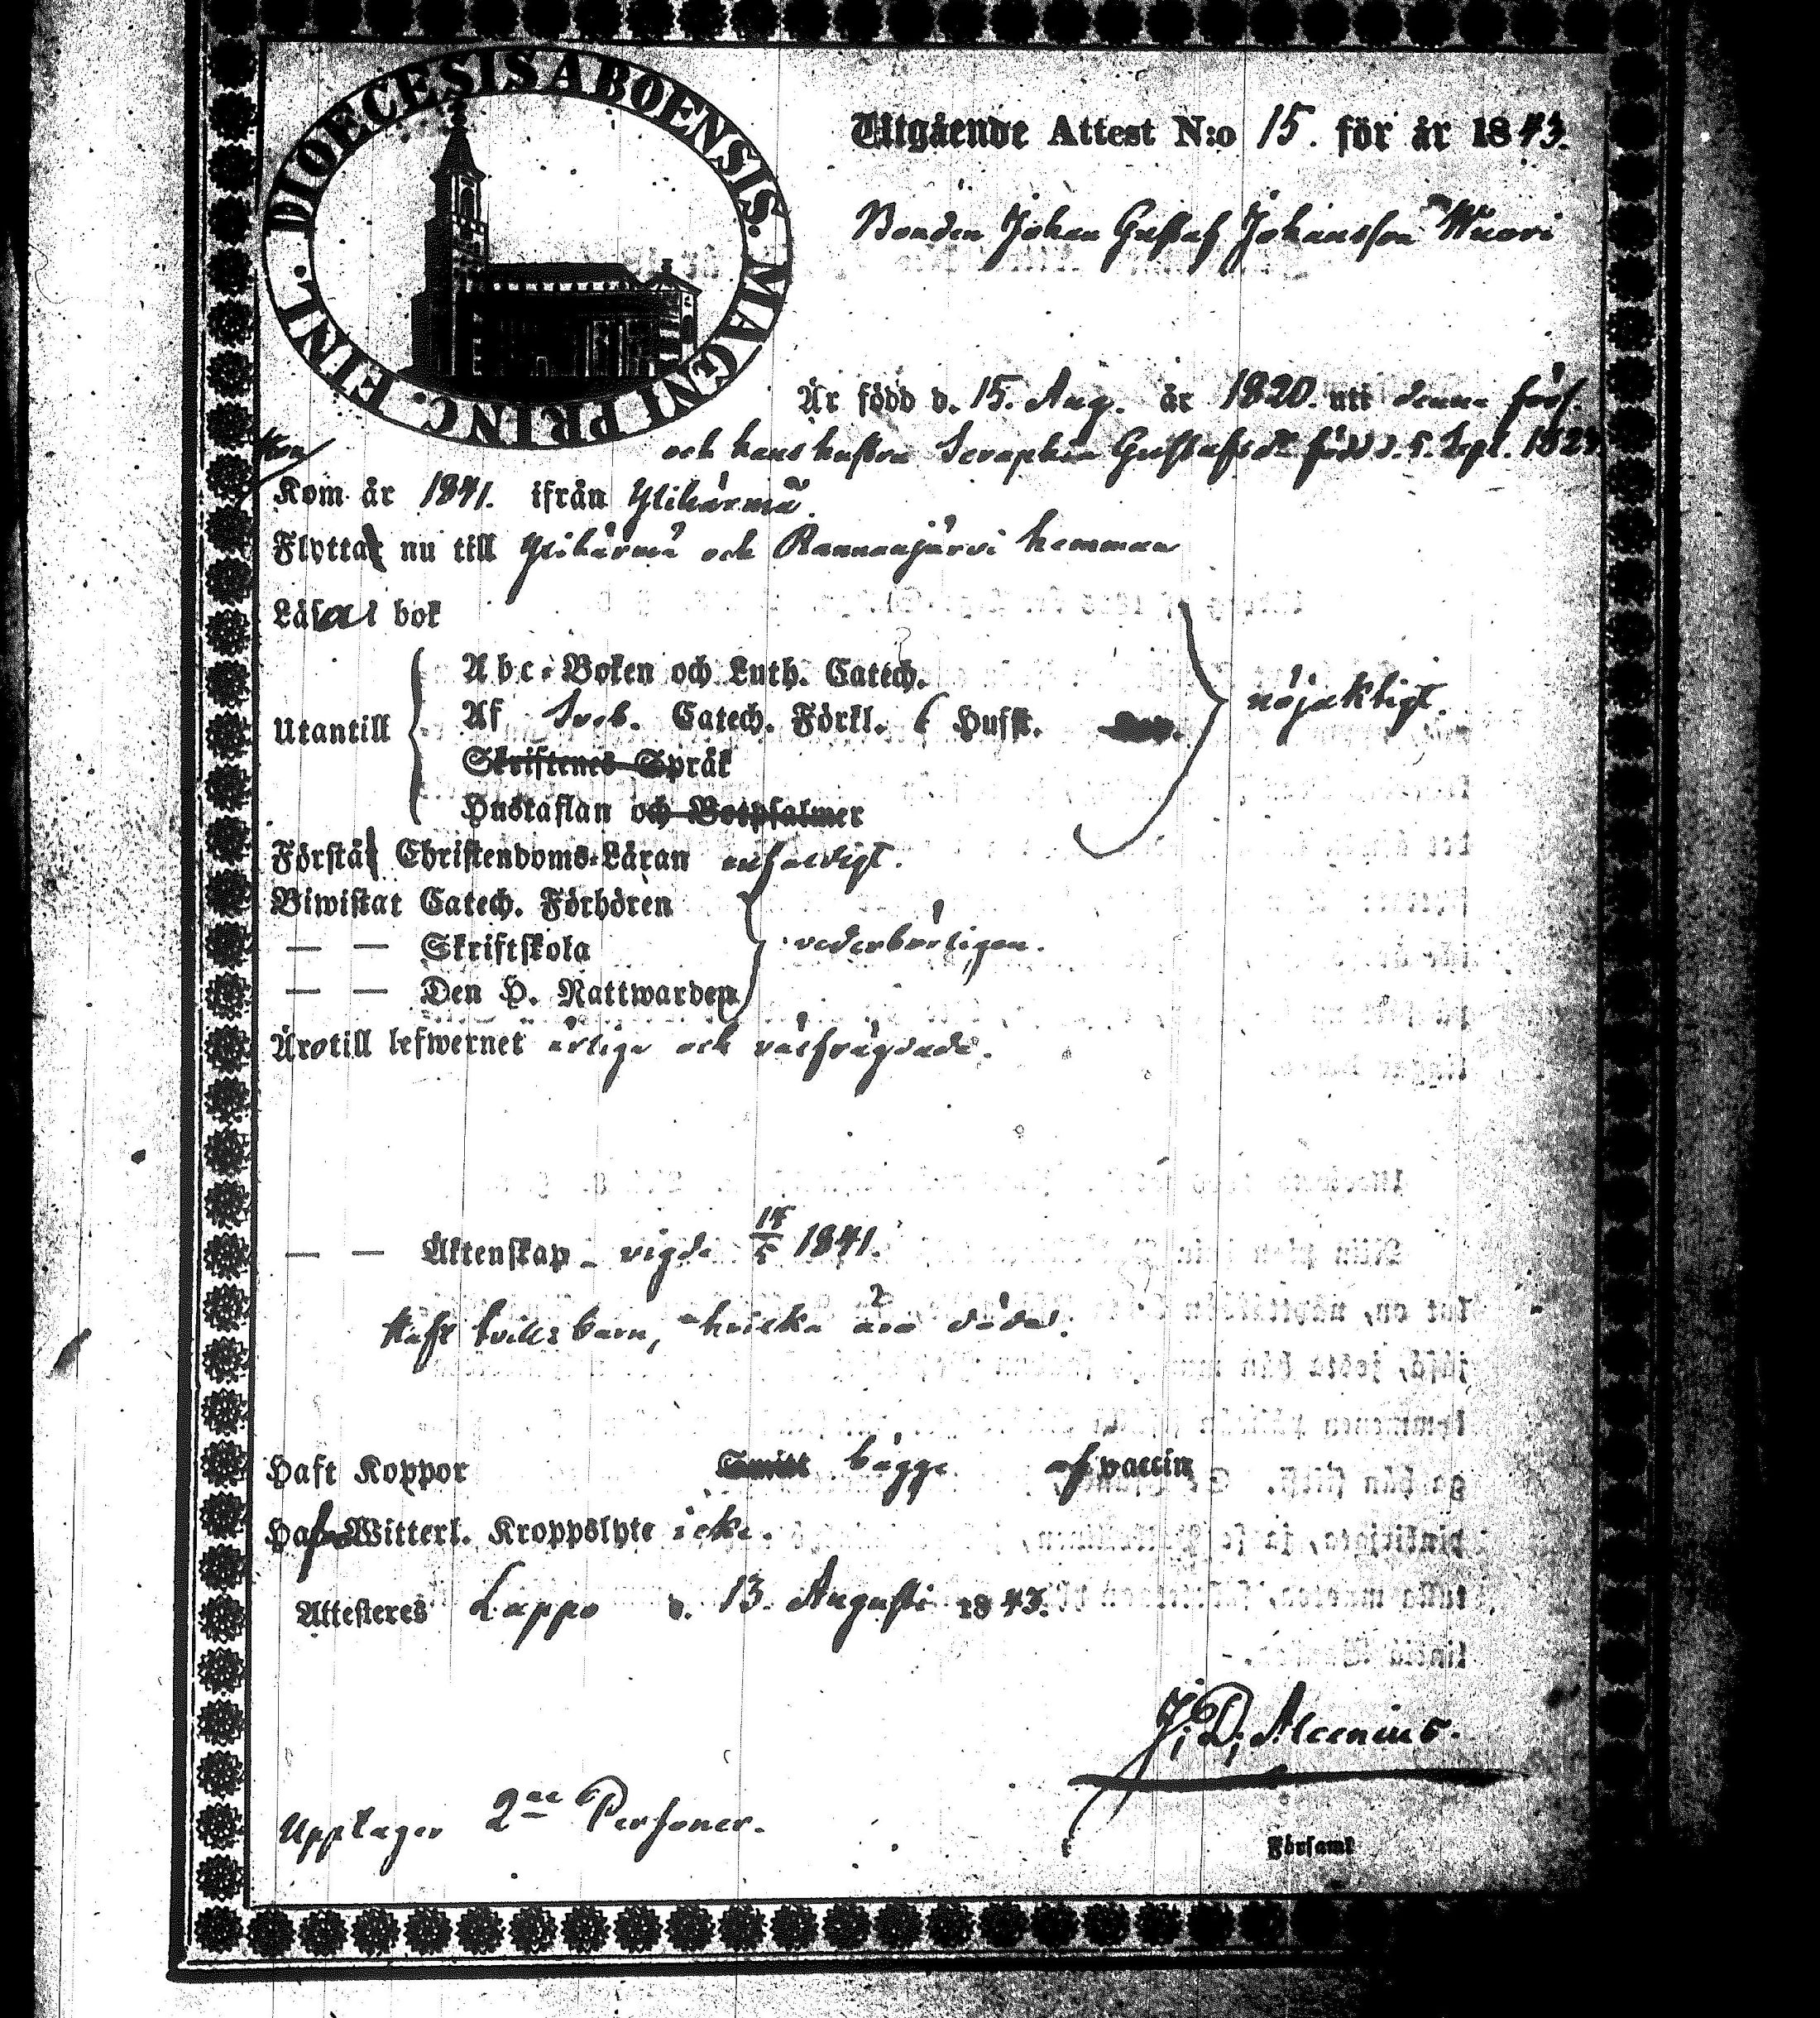 DIOECESIS ABOENSIS. MAGNI PRINC. FINL.
Utgående Attest N:o 15. för år 1843.
Bonden Johan Gustaf Johansson Wuori
Är född d. 15. Aug. år 1820. uti denna förs.
och hans hustru Seraphia Gustafsdr född d. 5. Sept. 182
Hon
Kom år 1841. ifrån Ylihärmä.
Flytta nu till Ylihärmä och Rannanjärvi hemman
Läsa i bok
Abc-Boken och Luth. Catech.
Utantill
Af Sveb. Catech. Förkl. 6 Hufst.
nöjaktigt.
Skriftenes Språk
Hustaflan och Botpsalmer
Förstå Christendoms-Läran enfaldigt.
Biwistat Catech. Förhören
— — Skriftskola
vederbörligen.
— — Den H. Nattwarden
Äro till lefwernet ärliga och välfrägdade.
— — Äktenskap - vigde 1841.
Haft barn, hvilka äro döda.
Haft Koppor Smitt bägge af vaccin
Hafva Witterl. Kroppslyte icke.
Attesteres Lappo d. 13. Augusti 1843.
J. D. Alcenius.
Upptager 2ne Personer.
Församl